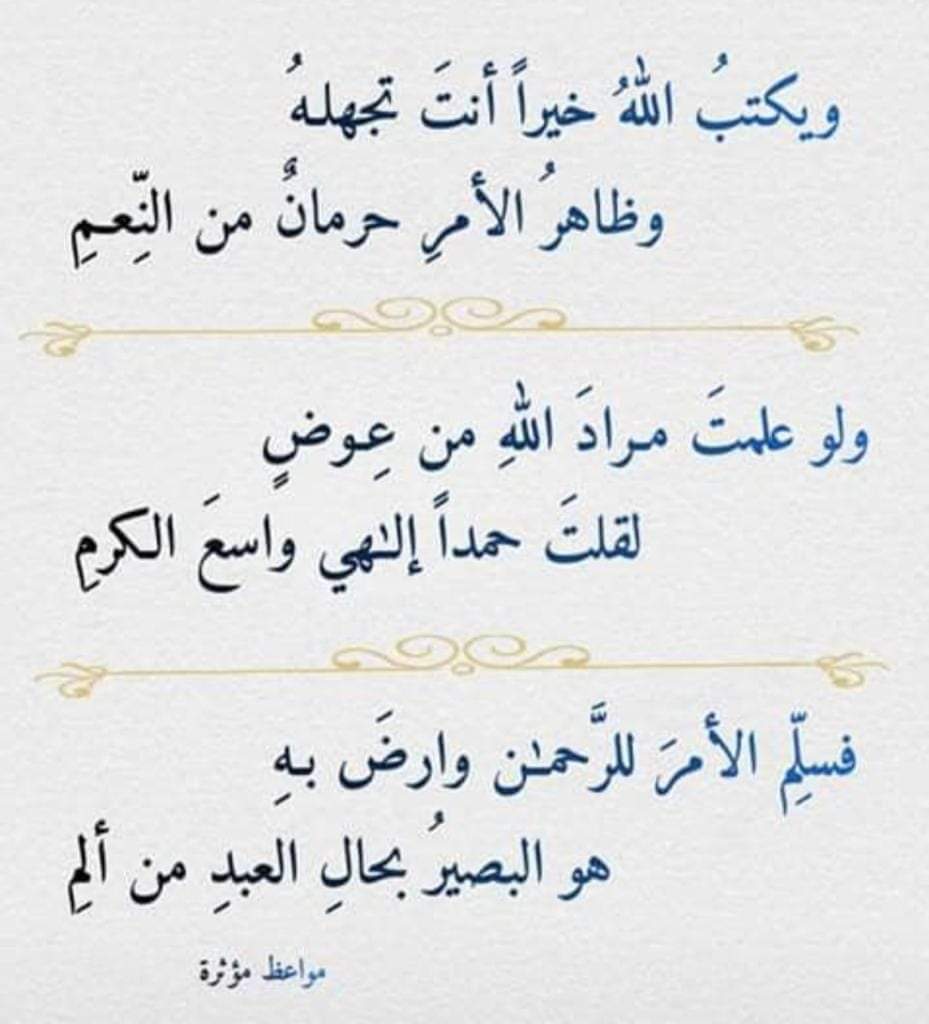 ويكتبُ اللهُ خيراً أنتَ تجهلهُ
وظاهرُ الأمرِ حرمانٌ من النِّعمِ
ولو علمتَ مرادَ اللهِ من عِوضٍ
لقلتَ حمداً إلـٰهي واسعَ الكرمِ
فسلِّمِ الأمرَ للرَّحمـٰن وارضَ بهِ
هو البصيرُ بحالِ العبدِ من ألمِ
مواعظ مؤثرة